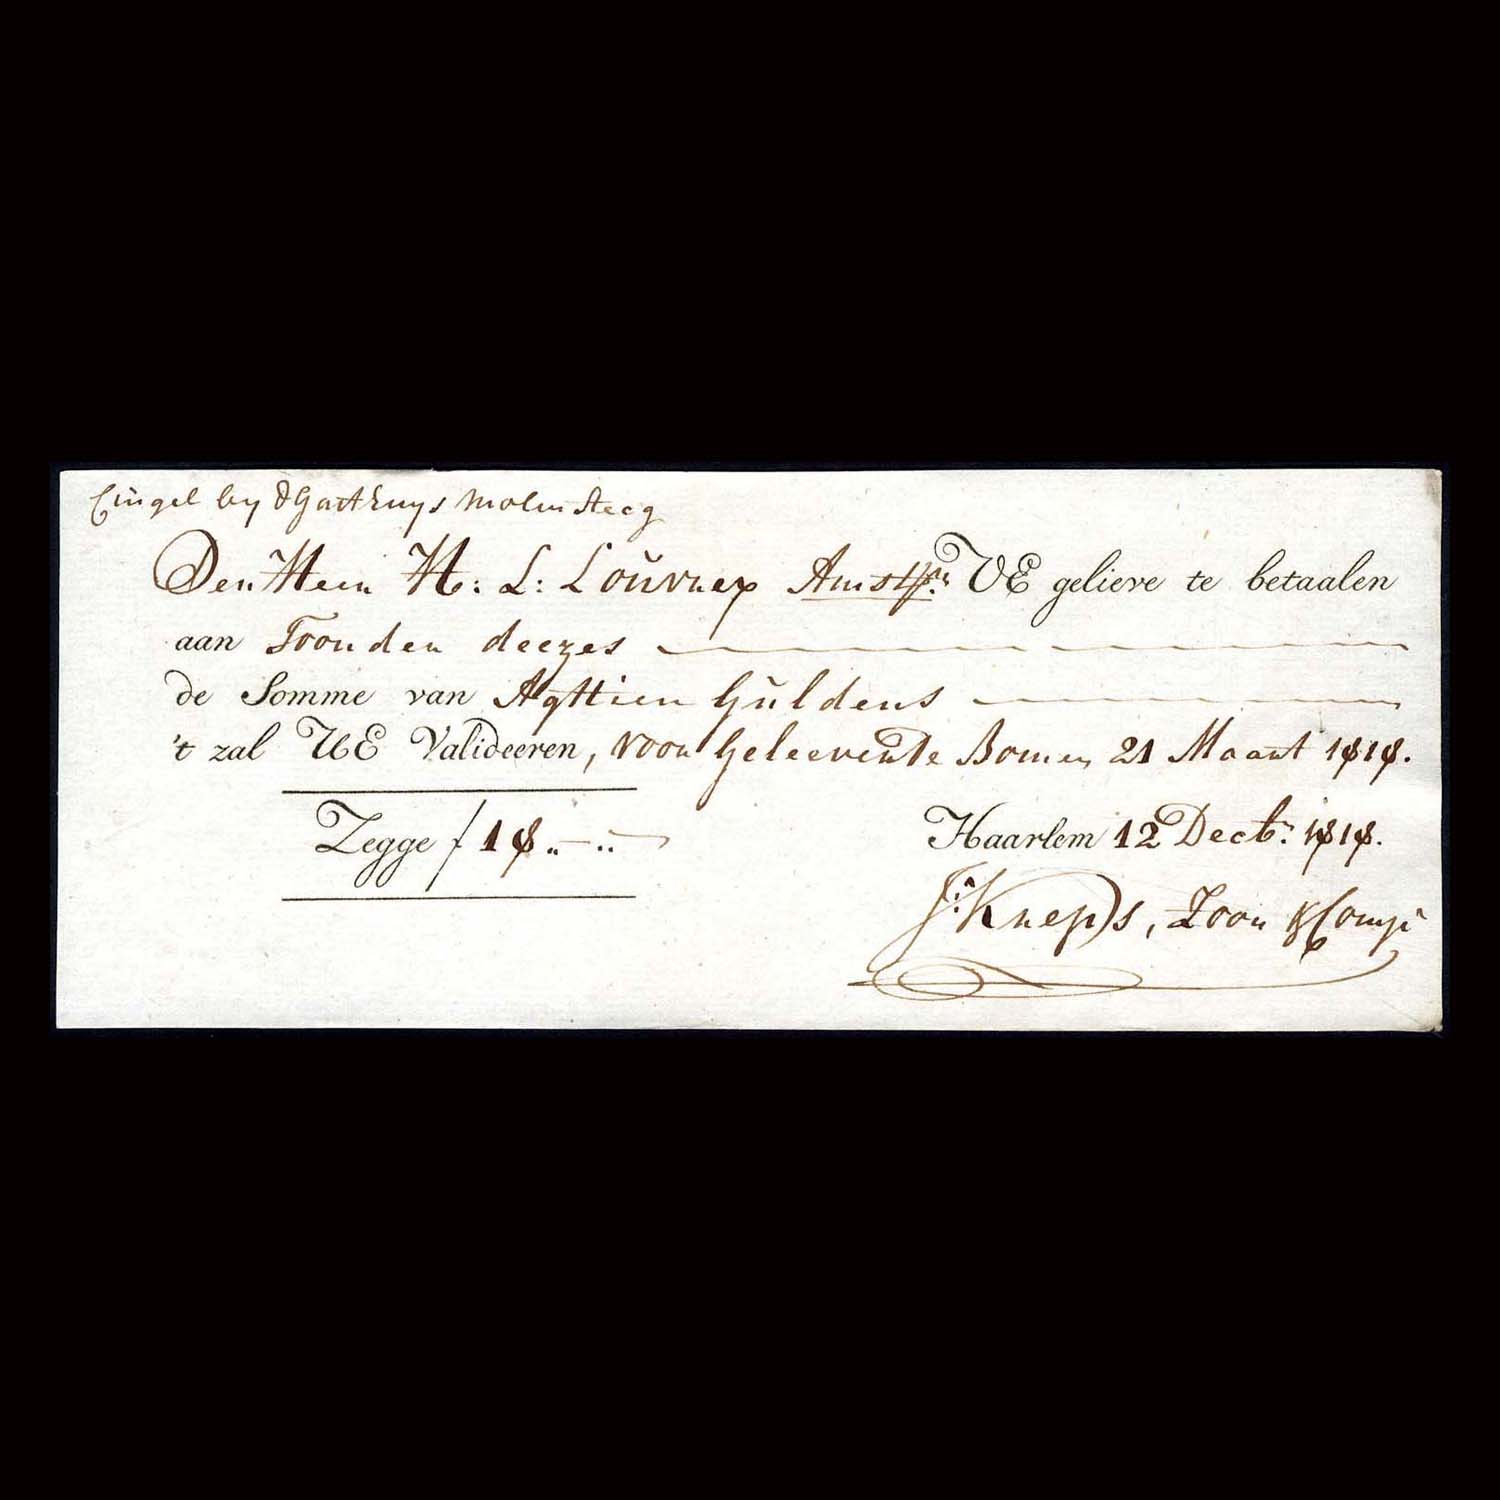 Cingel by d Gasthuys Molen Steeg
Den Heer H: L: Louvrier Amst.m UE gelieve te betaalen
aan Toonder deezes
de Somme van Agttien Guldens
't zal UE Valideeren, voor Geleeverde Bomen 21 Maart 1818.
Zegge ƒ 18.. — ..
Haarlem 12 Decb:r 1818.
J:n Kreps, Zoon & Comp: